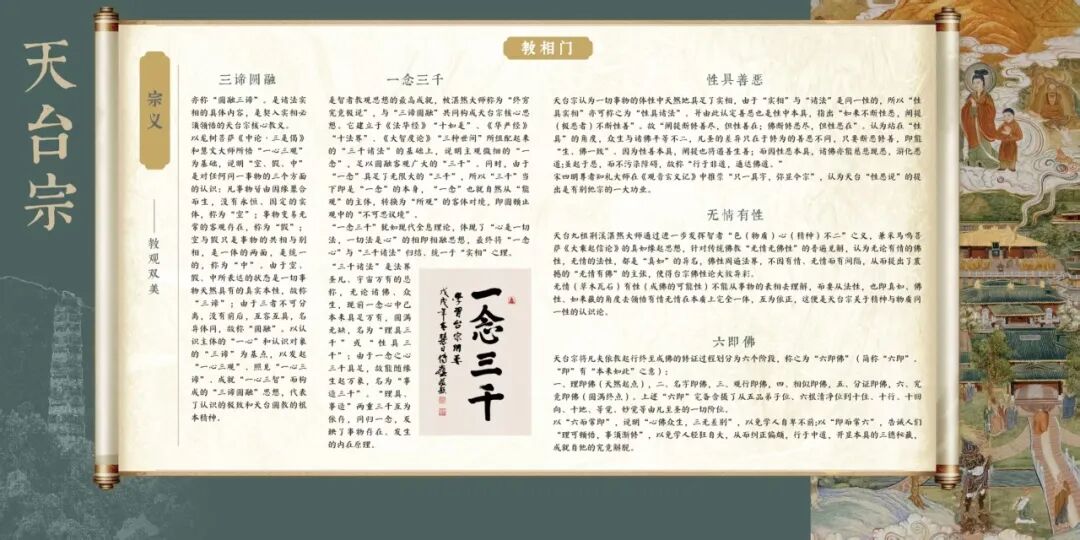 天台宗
宗义
——教观双美
教相门
三谛圆融
亦称“圆融三谛”。是诸法实
相的具体内容，是契入实相必
须领悟的天台宗核心教义。
以龙树菩萨《中论·三是偈》
和慧文大师所悟“一心三观”
为基础，说明“空、假、中”
是对任何同一事物的三个方面
的认识：凡事物皆由因缘聚合
而生，没有永恒、固定的实
体，称为“空”；事物变易无
常的客观存在，称为“假”；
空与假只是事物的共相与别
相，是一体的两面，是统一
的，称为“中”。由于空、
假、中所表达的状态是一切事
物天然具有的真实本性，故称
“三谛”；由于三者不可分
离，没有前后，互容互具，名
异体同，故称“圆融”。以认
识主体的“一心”和认识对象
的“三谛”为基点，以发起
“一心三观”、照见“一心三
谛”、成就“一心三智”而构
成的“三谛圆融”思想，代表
了认识的极致和天台圆教的根
本精神。
一念三千
是智者教观思想的最高成就，被湛然大师称为“终穷
究竟极说”，与“三谛圆融”共同构成天台宗核心思
想。它建立于《法华经》“十如是”、《华严经》
“十法界”、《大智度论》“三种世间”所组配起来
的“三千诸法”的基础上，说明主观微细的“一
念”，足以圆融客观广大的“三千”。同时，由于
“一念”真具了无限大的“三千”，所以“三千”当
下即是“一念”的本身，“一念”也就自然从“能
观”的主体，转换为“所观”的客体对境，即圆顿止
观中的“不可思议境”。
“一念三千”就如现代全息理论，体现了“心是一切
法，一切法是心”的相即相融思想，最终将“一念
心”与“三千诸法”归结、统一于“实相”之理。
“三千诸法”是法界
圣凡、宇宙万有的总
称，无论诸佛、众
生，现前一念心中已
本来具足万有，圆满
无缺，名为“理具三
千”或“性具三
千”；由于一念之心
三千具足，故能随缘
生起万象，名为“事
造三千”。“理具、
事造”两重三千互为
依存，同归一念，反
映了事物存在、发生
的内在原理。
一念三千
性具善恶
天台宗认为一切事物的体性中天然地具足了实相，由于“实相”与“诸法”是同一性的，所以“性
具实相”亦可称之为“性具诸法”，并由此认定善恶也是性中本具，指出“如来不断性恶，阐提
（极恶者）不断性善”。故“阐提断修善尽，但性善在；佛断修恶尽，但性恶在”。认为站在“性
具”的角度，众生与诸佛平等不二，凡圣的差异只在于修为的善恶不同，只要断恶修善，即能
“生、佛一致”。因为性善本具，阐提也可遇善生善；而因性恶本具，诸佛亦能慈悲现恶，游化恶
道；虽起于恶，而不污染障碍，故称“行于非道，通达佛道。”
宋四明尊者知礼大师在《观音玄义记》中推崇“只一具字，弥显今宗”，认为天台“性恶说”的
提出是有别他宗的一大功业。
无情有性
天台九祖荆溪湛然大师通过进一步发挥智者“色（物质）心（精神）不二”之义，兼采马鸣菩
萨《大乘起信论》的真如缘起思想，针对传统佛教“无情无佛性”的普遍见解，认为无论有情的佛
性，无情的法性，都是“真如”的异名，佛性周遍法界，不因有情、无情而有间隔，从而提出了震
撼的“无情有佛”的主张，使得台宗佛性论大放异彩。
无情（草木瓦石）有性（成佛的可能性）不能从事物的表相去理解，而要从法性，也即真如、佛
性、如来藏的角度去领悟有情无情在本质上完全一体，互为依正，这便是天台宗关于精神与物质同
一性的认识论。
六即佛
天台宗将凡夫依教起行终至成佛的修证过程划分为六个阶段，称之为“六即佛”（简称“六即”，
“即”有“本来如此”之意）：
一、理即佛（天然起点），二、名字即佛，三、观行即佛，四、相似即佛，五、分证即佛，六、究
竟即佛（圆满终点）。上述“六即”完备含摄了从五品弟子位、六根清净位到十住、十行、十回
向、十地、等觉、妙觉等由凡至圣的一切阶位。
以“六而常即”，说明“心佛众生，三无差别”，以免学人自卑不前；以“即而常六”，告诫人们
“理可顿悟，事须渐修”，以免学人轻狂自大，从而纠正偏颇，行于中道，开显本具的三德秘藏，
成就自他的究竟解脱。